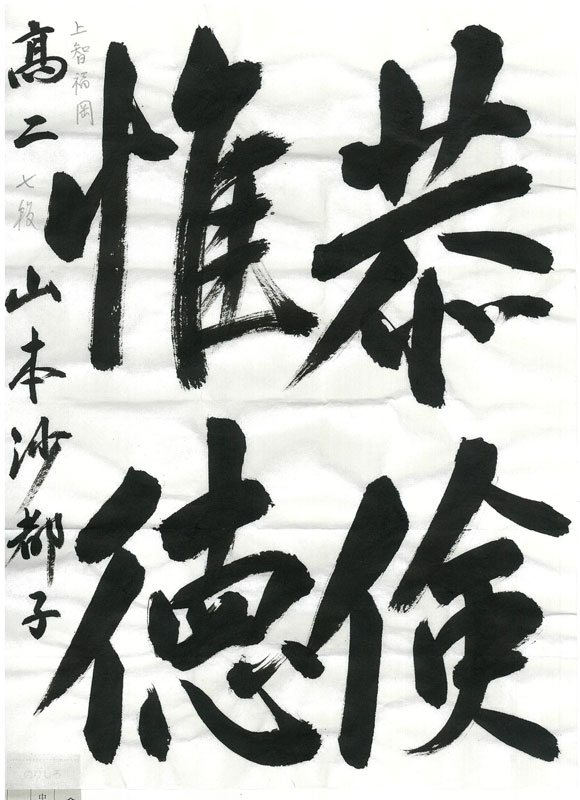 恭倹
惟徳
上智福岡
七段
高二 山本沙都子